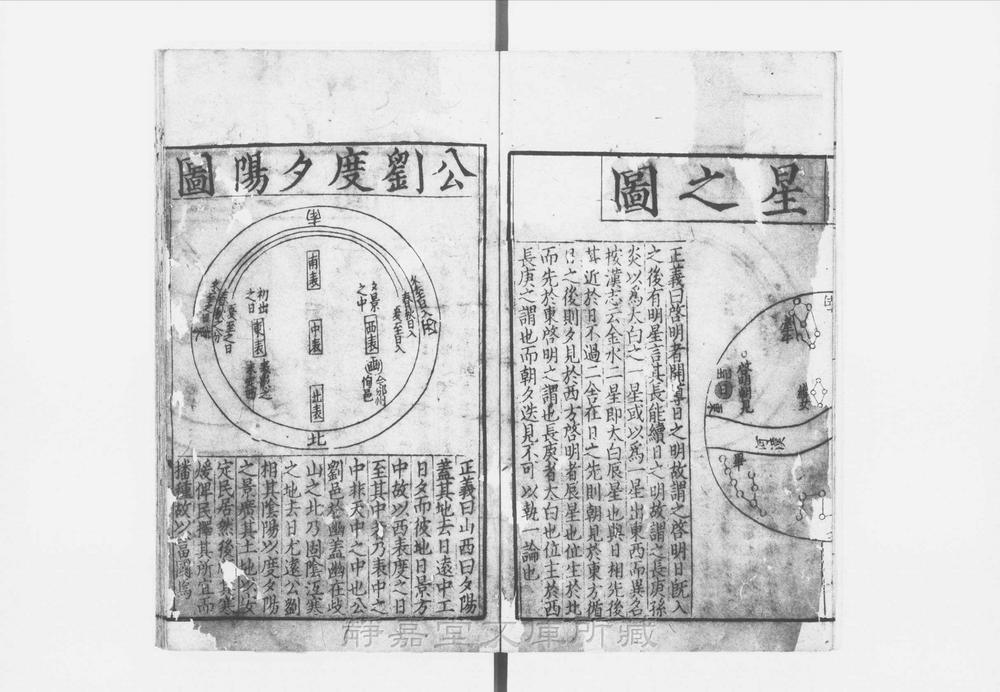 星之圖
正義曰啓明者開導日之明故謂之啓明日旣入
之後有明星言其長能續日之明故謂之長庚孫
炎以爲太白之一星或以爲一星出東西而異名
按漢志云金水二星即太白辰星也與日相先後
近於日不過二舍在日之先則朝見於東方循
日之後則夕見於西方啓明者辰星也位生於北
而先於東啓明之謂也長庚者太白也位主於西
長庚之謂也而朝夕迭見不可以執一論也
啓明朝見
出日
織女
漢
河
畢
公劉度夕陽圖
南表
中表
北表
北
東表
初出
之日
夏至之日
西表
夕景
之中
冬至日入
春秋日入
夏至日入
酉
豳
今邠州
伯邑
正義曰山西曰夕陽
蓋其地去日遠中工
日夕而彼地日景方
中故以西表度之日
至其中乃表中之
中非天中之中也公
劉邑於豳蓋豳在岐
山之北乃固陰沍寒
之地去日尤遠公劉
相其陰陽以度夕陽
之景廣其土地以安
定民居然後其寒
煖俾民擇其所宜而
播種故以富國焉
靜嘉堂文庫所藏